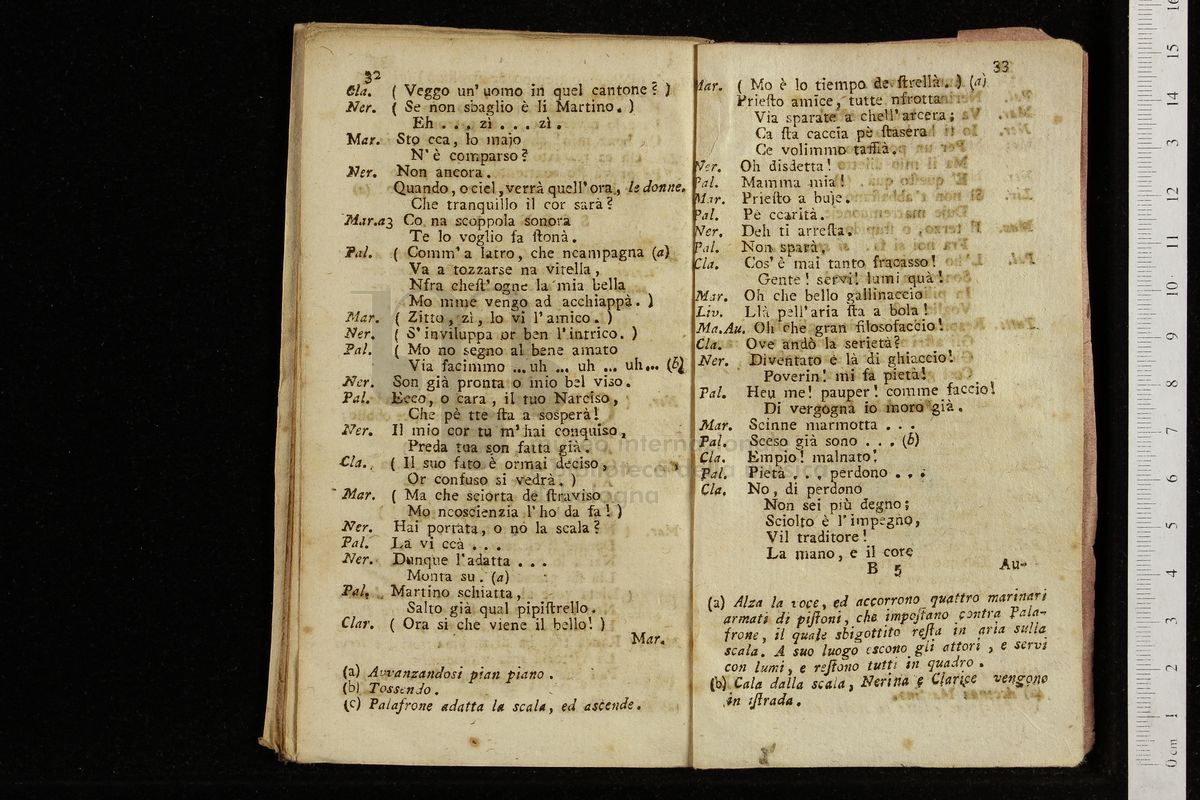 32
Cla. ( Veggo un' uomo in quel cantone? )
Ner. ( Se non sbaglio è li Martino. )
Eh . . . zì . . . zì.
Mar. Sto cca, lo majo
N' è comparso?
Ner. Non ancora.
Quando, o ciel, verrà quell' ora, le donne.
Che tranquillo il cor sarà?
Mar.a3 Co na scoppola sonora
Te lo voglio fa ſtonà.
Pal. ( Comm' a latro, che ncampagna (a)
Va a tozzarse na vitella,
Nfra cheſt' ogne la mia bella
Mo mme vengo ad acchiappà. )
Mar. ( Zitto, zì, lo vi l'amico. )
Ner. ( S' inviluppa or ben l'intrico. )
Pal. ( Mo no segno al bene amato
Via facimmo ... uh ... uh ... uh... (b)
Ner. Son già pronta o mio bel viso.
Pal. Ecco, o cara, il tuo Narciso,
Che pè tte ſta a sosperà!
Ner. Il mio cor tu m' hai conquiso,
Preda tua son fatta già.
Cla. ( Il suo fato è ormai deciso,
Or confuso si vedrà. )
Mar. ( Ma che sciorta de ſtraviso
Mo ncoscienzia l' ho da fa! )
Ner. Hai portata, o nò la scala?
Pal. La vi ccà . . .
Ner. Dunque l'adatta . . .
Monta su. (a)
Pal. Martino schiatta,
Salto già qual pipiſtrello.
Clar. ( Ora si che viene il bello! )
Mar.
(a) Avvanzandosi pian piano.
(b) Tossendo.
(c) Palafrone adatta la scala, ed ascende.
33
Mar. ( Mo è lo tiempo de ſtrellà. ) (a)
Prieſto amice, tutte nfrotta
Via sparate a chell' arcera;
Ca ſta caccia pè ſtasera
Ce volimmo taffià.
Ner. Oh disdetta!
Pal. Mamma mia!
Mar. Prieſto a buje.
Pal. Pè ccarità.
Ner. Deh ti arreſta.
Pal. Non sparà,
Cla. Cos' è mai tanto fracasso!
Gente! servi! lumi quà!
Mar. Oh che bello gallinaccio
Liv. Llà pell' aria ſta a bola!
Ma.Au. Oh che gran filosofaccio!
Cla. Ove andò la serietà?
Ner. Diventato è là di ghiaccio!
Poverin! mi fa pietà!
Pal. Heu me! pauper! comme faccio!
Di vergogna io moro già.
Mar. Scinne marmotta . . .
Pal. Sceso già sono . . . (b)
Cla. Empio! malnato!
Pal. Pietà . . , perdono . . .
Cla. No, di perdono
Non sei più degno;
Sciolto è l'impegno,
Vil traditore!
La mano, e il core
B 5 Au-
(a) Alza la voce, ed accorrono quattro marinari
armati di piſtoni, che impoſtano contra Pala-
frone, il quale sbigottito reſta in aria sulla
scala. A suo luogo escono gli attori, e servi
con lumi, e reſtono tutti in quadro.
(b) Cala dalla scala, Nerina e Clarice vengono
in iſtrada.